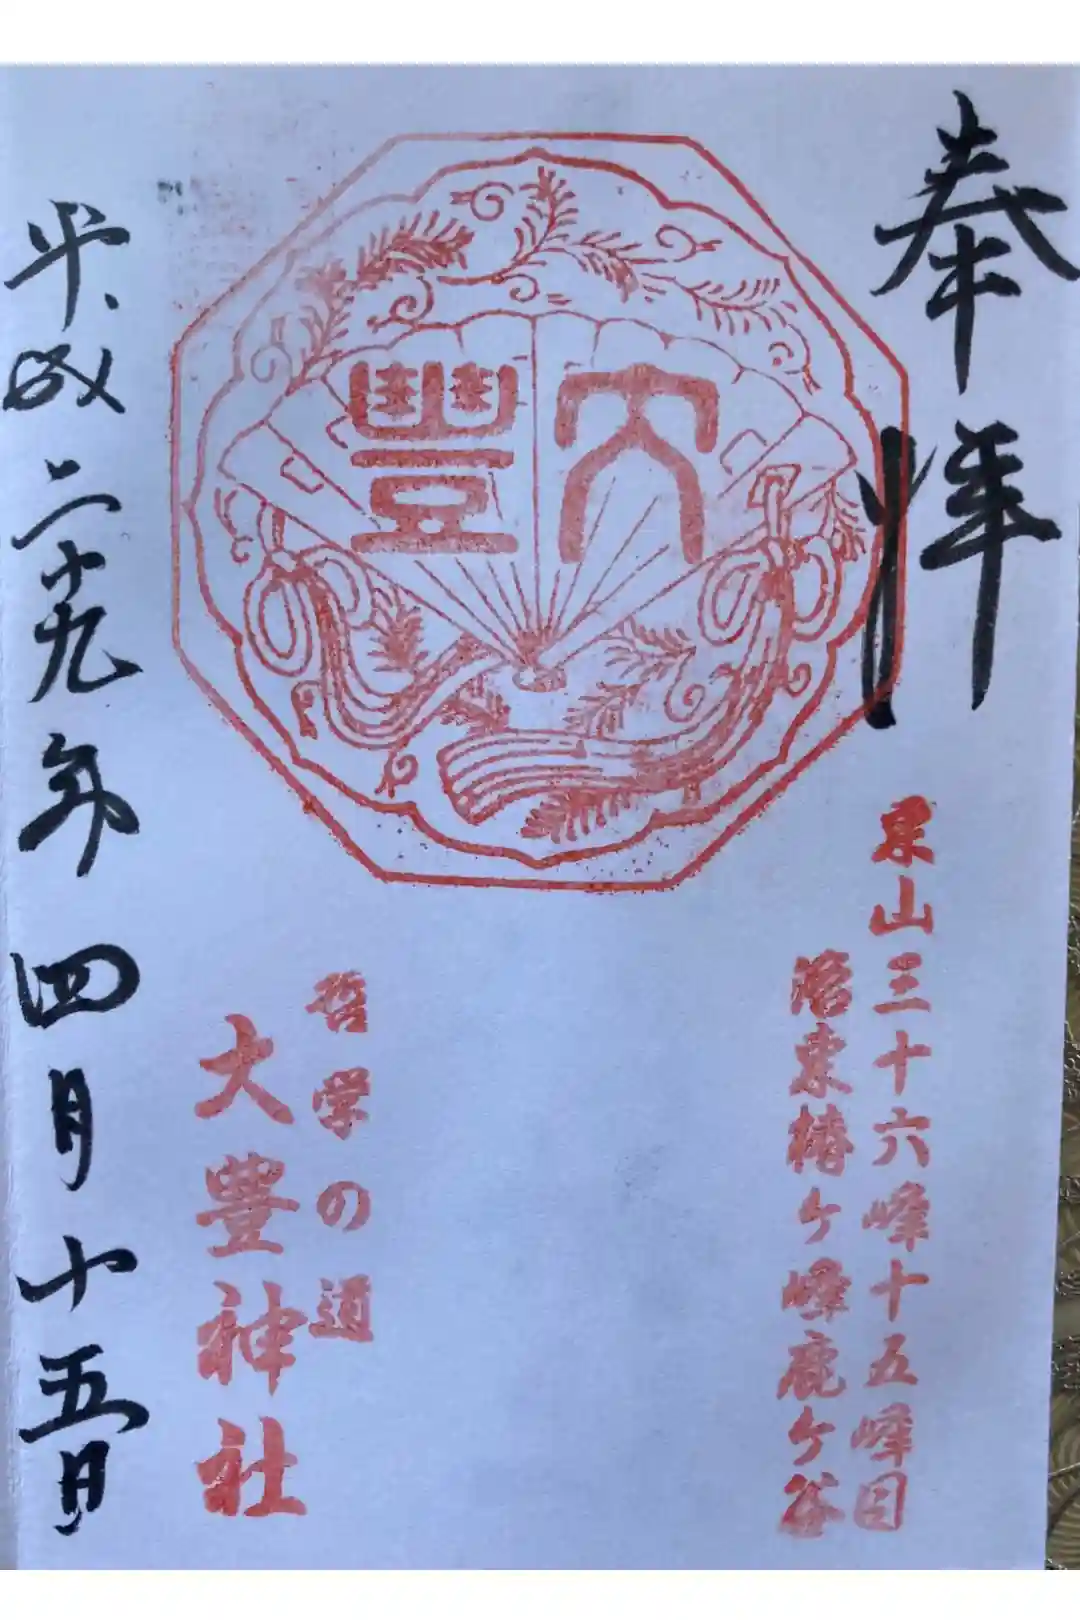 奉拝
東山三十六峰十五峰目
洛東椿ヶ峰鹿ケ谷
大豊
哲学の道
大豊神社
平成二十九年四月十五日